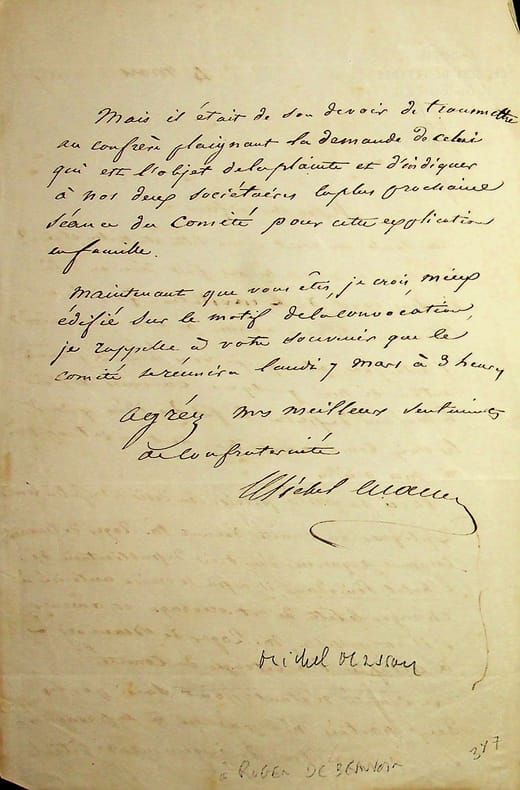 Mais il était de son devoir de transmettre
au confrère plaignant la demande de celui
qui est l'objet de la plainte et d'indiquer
à nos deux sociétaires la plus prochaine
séance du Comité pour cette explication
en famille.
Maintenant que vous êtes, je crois, mieux
édifié sur le motif de la convocation,
je rappelle à votre souvenir que le
comité se réunira lundi 7 mars à 3 heures
agréez mes meilleurs sentiments
de confraternité
Michel Masson
Michel Masson
à ROGER DE BEAUVOIR
347